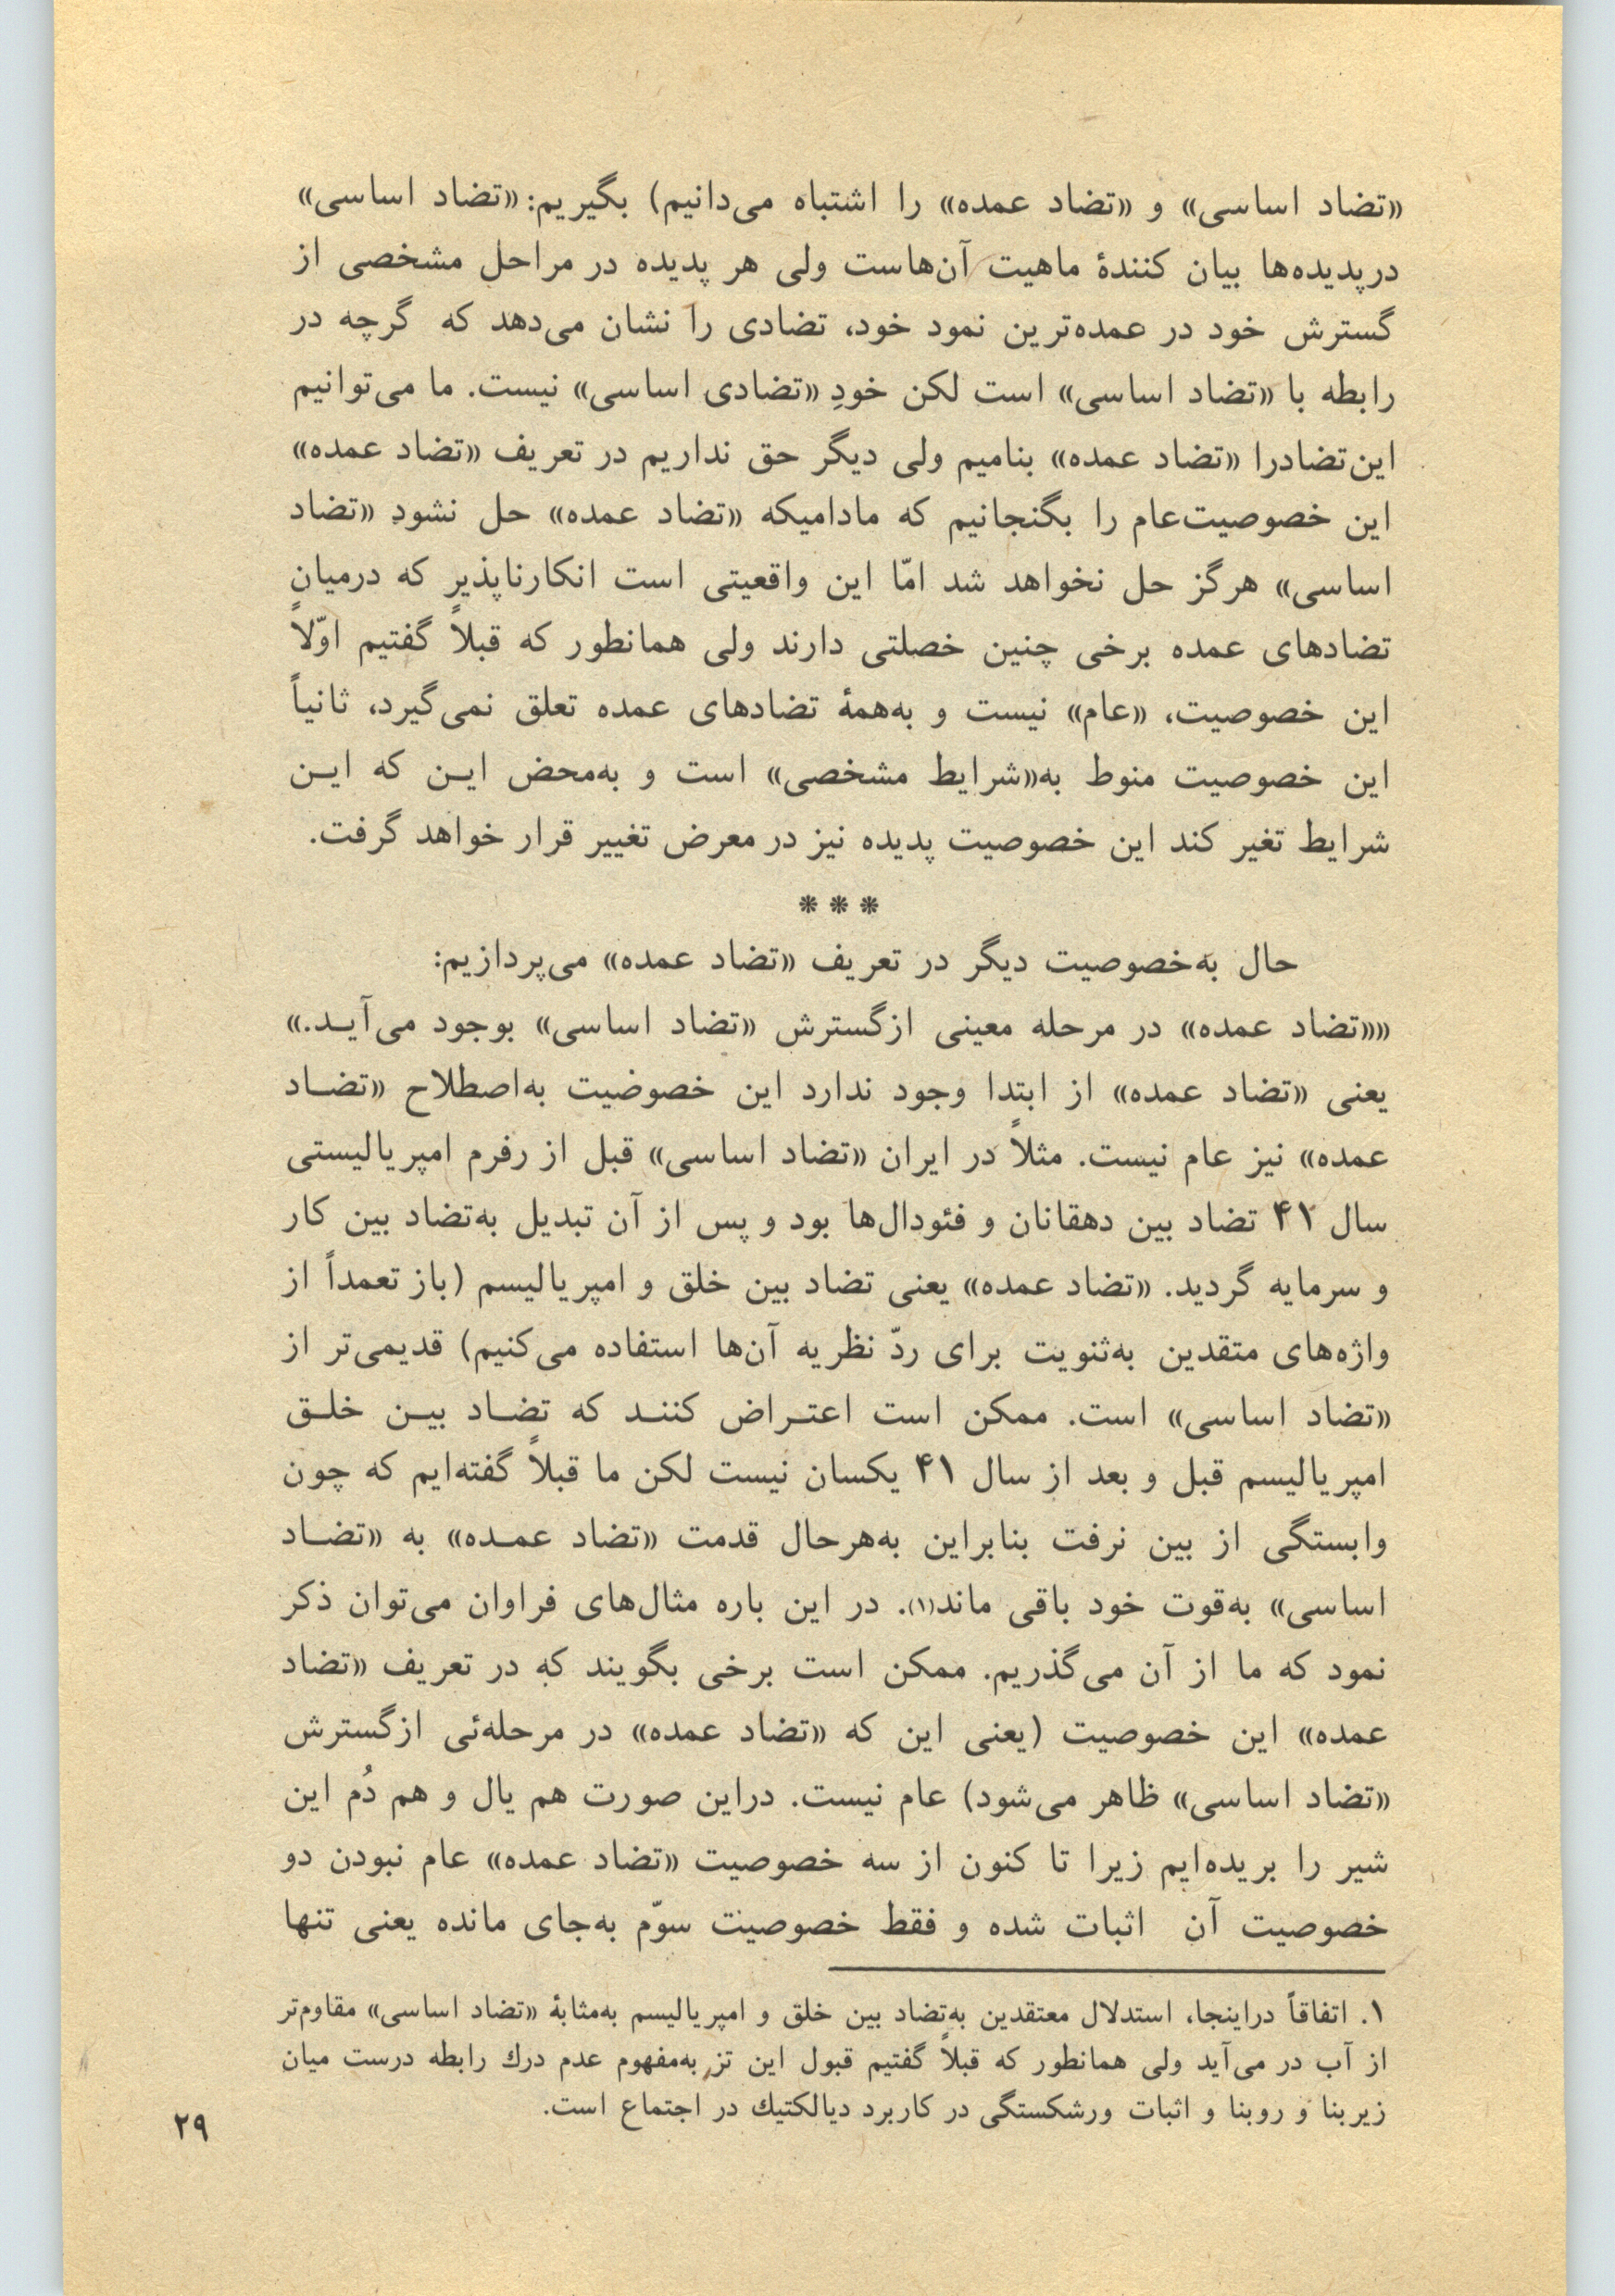 «تضاد اساسی» و «تضاد عمده» را اشتباه می‌دانیم) بگیریم: «تضاد اساسی»
درپدیده‌ها بیان کنندهٔ ماهیت آن‌هاست ولی هر پدیده در مراحل مشخصی از
گسترش خود در عمده‌ترین نمود خود، تضادی را نشان می‌دهد که گرچه در
رابطه با «تضاد اساسی» است لکن خودِ «تضادی اساسی» نیست. ما می‌توانیم
این‌تضادرا «تضاد عمده» بنامیم ولی دیگر حق نداریم در تعریف «تضاد عمده»
این خصوصیت‌عام را بگنجانیم که مادامیکه «تضاد عمده» حل نشود «تضاد
اساسی» هرگز حل نخواهد شد امّا این واقعیتی است انکارناپذیر که درمیان
تضادهای عمده برخی چنین خصلتی دارند ولی همانطور که قبلاً گفتیم اوّلاً
این خصوصیت، «عام» نیست و به‌همهٔ تضادهای عمده تعلق نمی‌گیرد، ثانیاً
این خصوصیت منوط به«شرایط مشخصی» است و به‌محض ایـن که ایـن
شرایط تغیر کند این خصوصیت پدیده نیز در معرض تغییر قرار خواهد گرفت.
* * *
حال به‌خصوصیت دیگر در تعریف «تضاد عمده» می‌پردازیم:
««تضاد عمده» در مرحله معینی ازگسترش «تضاد اساسی» بوجود می‌آیـد.»
یعنی «تضاد عمده» از ابتدا وجود ندارد این خصوضیت به‌اصطلاح «تضـاد
عمده» نیز عام نیست. مثلاً در ایران «تضاد اساسی» قبل از رفرم امپریالیستی
سال ۴۱ تضاد بین دهقانان و فئودال‌ها بود و پس از آن تبدیل به‌تضاد بین کار
و سرمایه گردید. «تضاد عمده» یعنی تضاد بین خلق و امپریالیسم (باز تعمداً از
واژه‌های متقدین به‌ثنویت برای ردّ نظریه آن‌ها استفاده می‌کنیم) قدیمی‌تر از
«تضاد اساسی» است. ممکن است اعتـراض کننـد که تضـاد بیـن خلـق
امپریالیسم قبل و بعد از سال ۴۱ یکسان نیست لکن ما قبلاً گفته‌ایم که چون
وابستگی از بین نرفت بنابراین به‌هرحال قدمت «تضاد عمـده» به «تضـاد
اساسی» به‌قوت خود باقی ماند(۱). در این باره مثال‌های فراوان می‌توان ذکر
نمود که ما از آن می‌گذریم. ممکن است برخی بگویند که در تعریف «تضاد
عمده» این خصوصیت (یعنی این که «تضاد عمده» در مرحله‌ئی ازگسترش
«تضاد اساسی» ظاهر می‌شود) عام نیست. دراین صورت هم یال و هم دُم این
شیر را بریده‌ایم زیرا تا کنون از سه خصوصیت «تضاد عمده» عام نبودن دو
خصوصیت آن اثبات شده و فقط خصوصیت سوّم به‌جای مانده یعنی تنها
۱. اتفاقاً دراینجا، استدلال معتقدین به‌تضاد بین خلق و امپریالیسم به‌مثابهٔ «تضاد اساسی» مقاوم‌تر
از آب در می‌آید ولی همانطور که قبلاً گفتیم قبول این تز به‌مفهوم عدم درك رابطه درست میان
زیربنا و روبنا و اثبات ورشکستگی در کاربرد دیالکتیك در اجتماع است.
۲۹